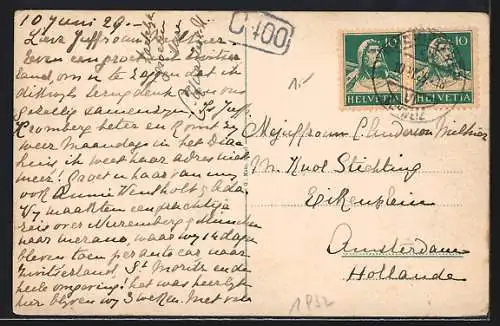 10 Juni 29.-
Lieve Juffrouw
Even een groet uit Zwitser
land, om u te zeggen dat ik
dikwijls terug denk aan ons
gezellig samenzijn. Is Juffr.
Kromberg beter en komt zy
weer Maandags in het Diac.
huis ik weet haar adres niet
meer! Groet u haar van my
ook Annie Wentholt & Ada.
Wy maakten een prachtige
reis over Nuremberg & München
naar Merano, waar wy 14 dagen
bleven toen per auto car naar
Zwitserland, St Moritz en de
hele omgeving! het was heerlyk
hier blyven wy 3 weken. Met vele
hartelyke
groeten
C 100
10 10
HELVETIA HELVETIA
1.-
Mejuffrouw C. Anderson
M. Knol Stichting
Eikenplein
Amsterdam
Hollande